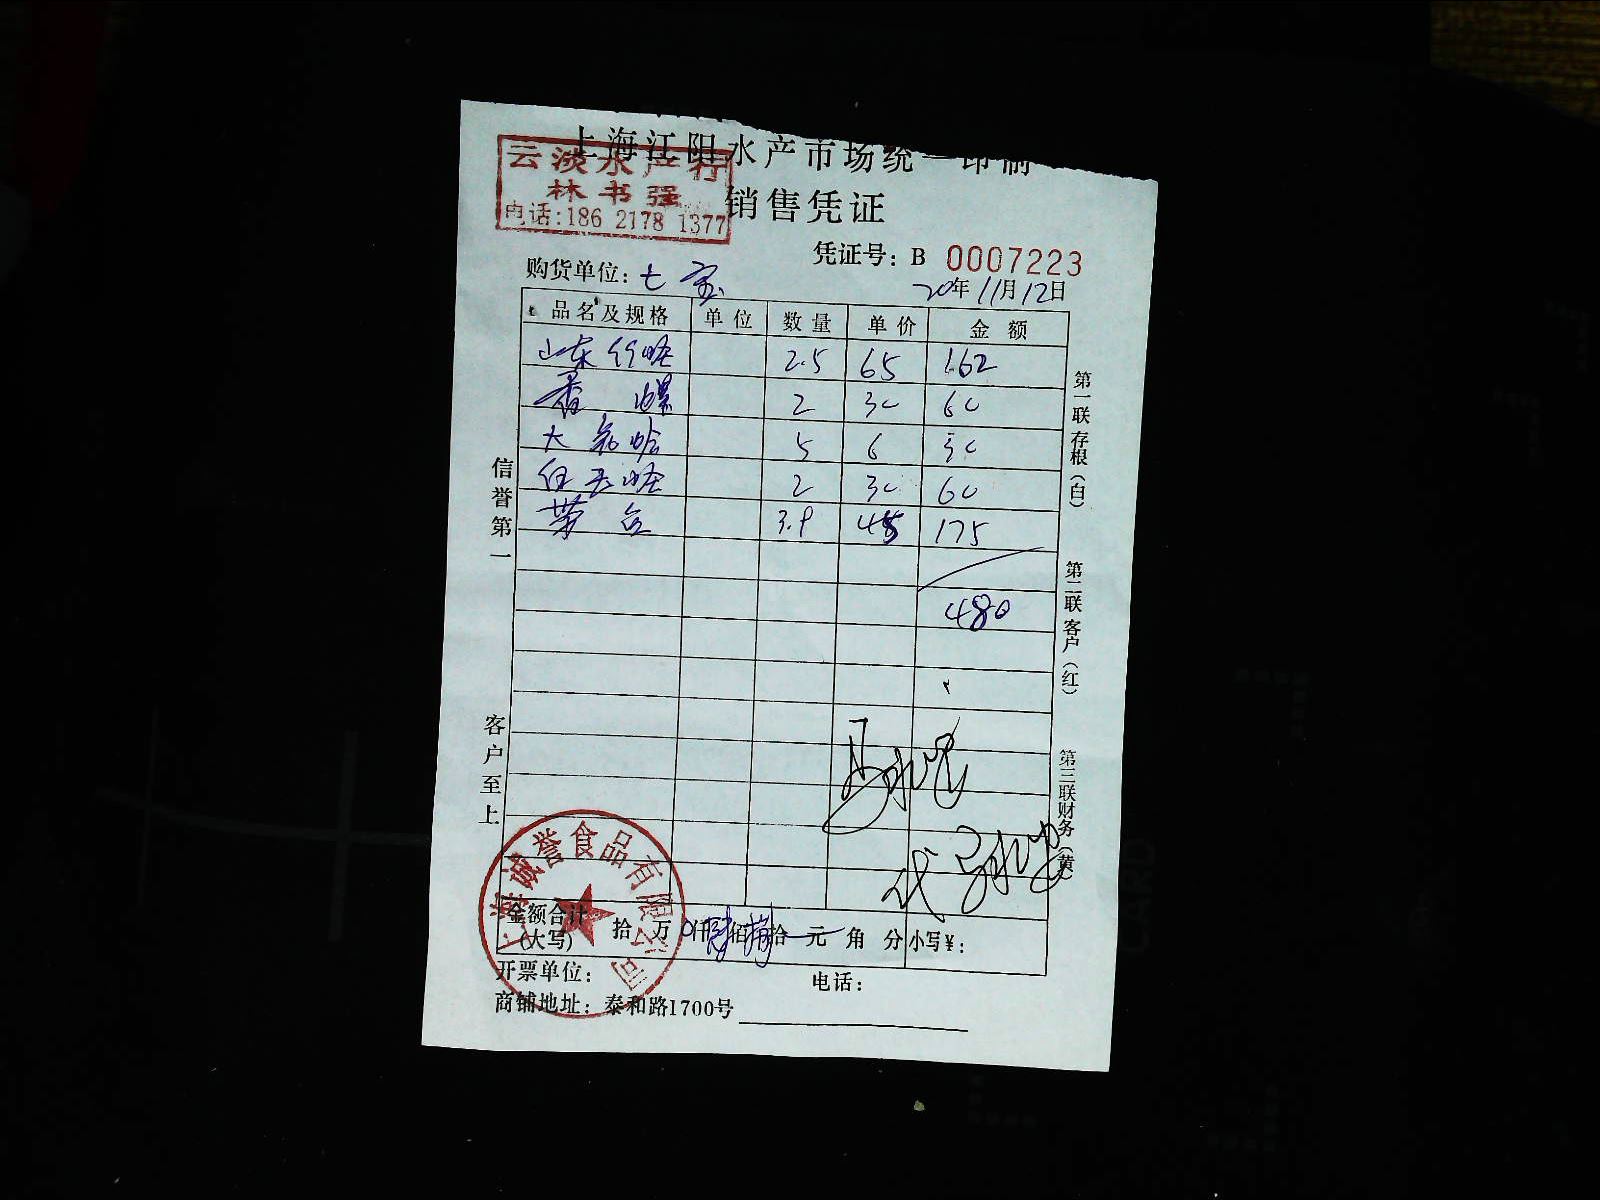 上海江阳水产市场统一印制
云淡水产行
林书强
电话:186 2178 1377
销售凭证
凭证号: B 0007223
购货单位: 七宝
20年11月12日
品名及规格 单位 数量 单价 金额
山东竹蛏 2.5 65 162
香螺 2 30 60
大花蛤 5 6 30
白玉蛏 2 30 60
带 3.9 45 175
480
信誉第一
客户至上
第一联存根(白)
第二联客户(红)
第三联财务(黄)
代
上海诚誉食品有限公司
金额合计(大写) 拾 万 0仟肆佰捌拾 元 角 分 小写¥:
开票单位: 电话:
商铺地址: 泰和路1700号